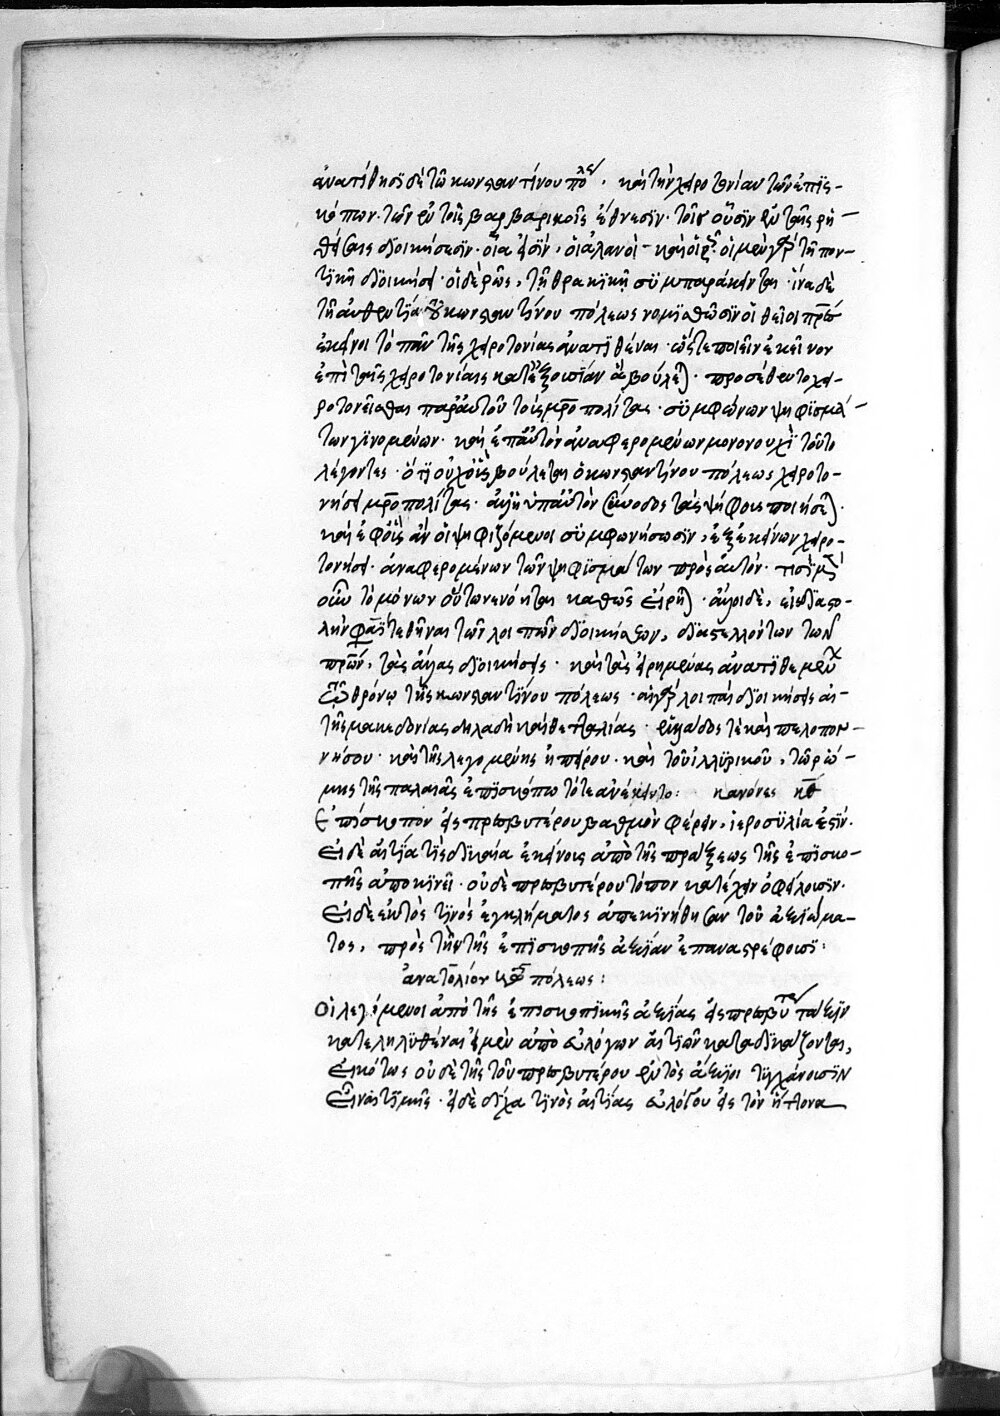 ἀνατίθησϊ δὲ τῶ κωνσταντίνου πόλει. καὶ τὴν χειροτονίαν τῶν ἐπϊσ-
κόπων. τῶν ἐν τοῖς βαρβαρικοῖς ἔθνεσϊν. τοῖς οὖσϊν ἐν ταῖς ῥη-
θείσαις διοικήσεσϊν. οἷα εἰσΐν, οἱ ἀλανοὶ καὶ οἱ ῥῶς. οἱ μὲν γὰρ τῆ πον-
τϊκῆ διοικήσει. οἱ δὲ ῥῶς, τῆ θρακϊκῆ συμπαράκεινται. ἵνα δὲ
τῆ αὐθεντΐα τοῦ κωνσταντίνου πόλεως νομϊσθῶσϊν οἱ θεῖοι πρε
ἐκεῖνοι τὸ πᾶν τῆς χειροτονίας ἀνατϊθέναι. ὥστε ποιεῖν ἐκεῖνον
ἐπὶ ταῖς χειροτονίαις κατ' ἐξουσΐαν ἃ βούλεται. προσέθεντο χει-
ροτονεῖσθαι παρ' αὐτοῦ τοὺς μητροπολίτας. συμφώνων ψηφϊσμά-
των γϊνομένων. καὶ ἐπ' αὐτὸν ἀναφερομένων μονονουχὶ τοῦτο
λέγοντες. ὅτϊ οὐχ οὓς βούλεται ὁ κωνσταντίνου πόλεως χειροτο-
νήσει μητροπολίτας. ἀλλ' ἡ ὑπ' αὐτὸν σύνοδος τὰς ψήφους ποιήσεται.
καὶ ἐφ' οἷς ἂν οἱ ψηφϊζόμενοι συμφωνήσωσϊν, ἐξ ἐκείνων χειρο-
τονήσει. ἀναφερομένων τῶν ψηφϊσμάτων πρὸς αὐτόν. τισὶ μὲν
οὖν τὸ μόνων οὕτω νενόηται καθὼς εἴρηται. ἄλλοι δὲ, εἰς διαστο-
λὴν φασὶ τεθῆναι τῶν λοιπῶν διοικήσεων, διαστελλόντων τῶν
πρων, τὰς ἄλλας διοικήσεις. καὶ τὰς εἰρημένας ἀνατϊθεμένων
τῶ θρόνω τῆς κωνσταντΐνου πόλεως. αἱ γὰρ λοιπαὶ διοικήσεις αἱ
τῆς μακεδονίας δηλαδὴ καὶ θετταλίας. ἑλλάδος τὲ καὶ πελοπον-
νήσου. καὶ τῆς λεγομένης ἠπείρου. καὶ τοῦ ἰλλϋρικοῦ, τῶ ῥώ-
μης τῆς παλαιᾶς ἐπϊσκόπω τότε ἀνέκειντο: κανόνες κθ
Ἐπίσκοπον εἰς πρεσβυτέρου βαθμὸν φέρειν, ἱεροσυλία ἐστΐν.
Εἰ δὲ αἰτΐα τϊς δϊκαία ἐκείνους ἀπὸ τῆς πράξεως τῆς ἐπϊσκο-
πῆς ἀποκϊνεῖ. οὐδὲ πρεσβυτέρου τόπον κατέχειν ὀφείλουσϊν.
Εἰ δὲ ἐκτὸς τϊνὸς ἐγκλήματος ἀπεκϊνήθησαν τοῦ ἀξϊώμα-
τος, πρὸς τὴν τῆς ἐπϊσκοπῆς ἀξΐαν ἐπαναστρέφουσϊ:
ἀνατολίου κω πόλεως:
Οἱ λεγόμενοι ἀπὸ τῆς ἐπισκοπϊκῆς ἀξΐας εἰς πρεσβυτέρου τάξϊν
κατεληλϋθέναι εἰ μὲν ἀπὸ εὐλόγων αἰτϊῶν καταδϊκάζονται,
εἰκότως οὐδὲ τῆς τοῦ πρεσβυτέρου ἐντὸς ἄξϊοι τϋγχάνουσϊν
εἶναι τϊμῆς. εἰ δὲ δΐχα τϊνὸς αἰτΐας εὐλόγου εἰς τὸν ἥττονα